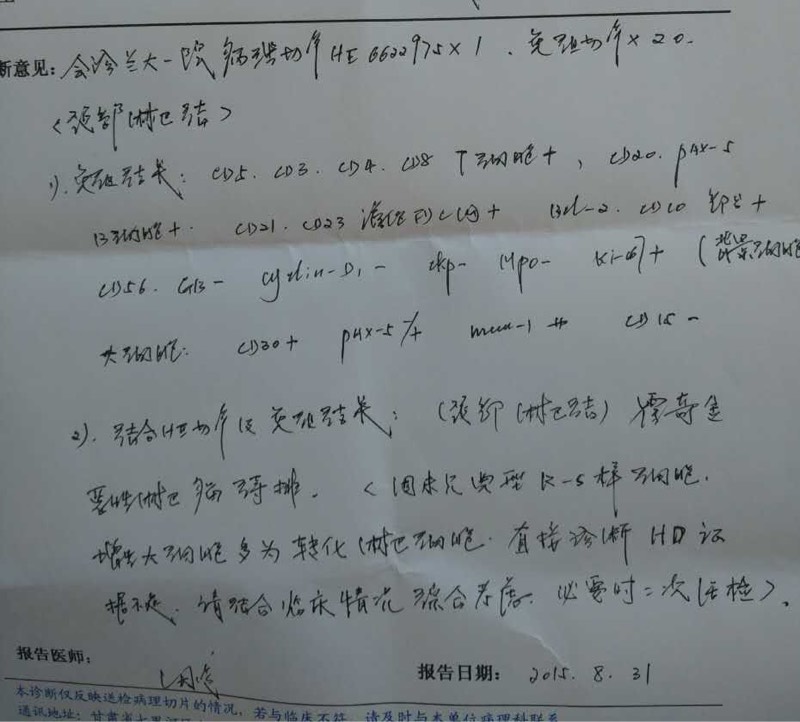 断意见: 会诊兰大一院病理切片HE 6622975×1、免组切片×20.
<颈部淋巴结>
1). 免组结果: CD5. CD3. CD4. CD8 T细胞+, CD20. PAX-5
B细胞+. CD21. CD23 滤泡 + Bcl-2. CD10 部分+
CD56. GB- cyclin-D1- ckp- Mpo- Ki-67+ (背景细胞
大细胞: CD30+ PAX-5 mum-1 CD15-
2). 结合HE切片及免组结果: (颈部淋巴结) 霍奇金
恶性淋巴瘤待排. <因未见典型R-S样细胞.
增生大细胞多为转化淋巴细胞. 直接诊断HD证
据不足. 请结合临床情况综合考虑. 必要时二次活检>.
报告医师:
报告日期: 2015. 8. 31
本诊断仅反映送检病理切片的情况,若与临床不符,请及时与本单位病理科联系
通讯地址: 甘肃省